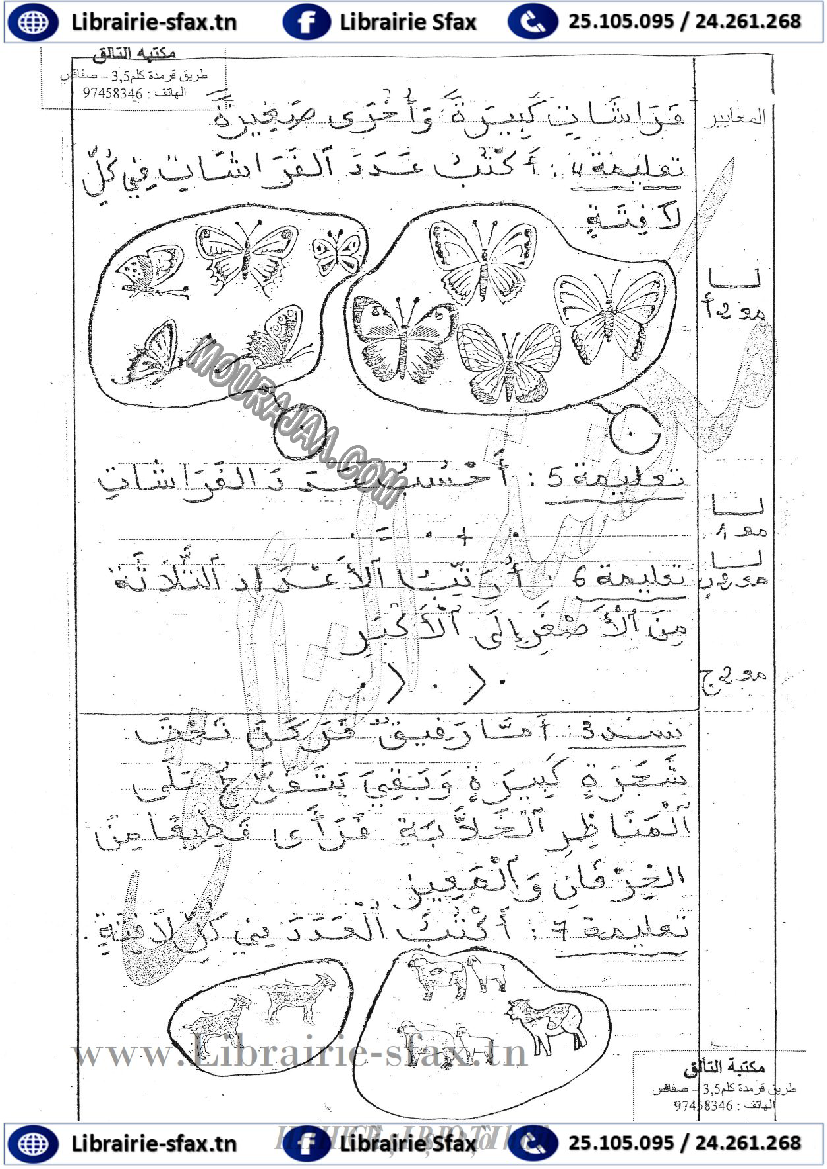 Librairie-sfax.tn Librairie Sfax 25.105.095 / 24.261.268
مكتبة التألق
طريق قرمدة كلم3,5 – صفاقص
الهاتف : 97458346
المعايير
فَرَاشَاتٍ كَبِيرَةً وَأُخْرَى صَغِيرَةً
تعليمة 4 : أَكْتُبُ عَدَدَ ٱلْفَرَاشَاتِ فِي كُلِّ
لَافِتَةٍ
مع 2 أ
MOURAJAA.COM
تعليمة 5 : أَحْسُبُ عَدَدَ الفَرَاشَاتِ
مع 1
. + . = .
تعليمة 6 : أُرَتِّبُ ٱلأَعْدَادَ ٱلثَّلَاثَةَ
مِنَ ٱلْأَصْغَرِ إِلَى ٱلْأَكْبَرِ
مع 2 ج
. < . < .
سند 3 : أَمَّا رَفِيقٌ فَرَكَنَ تَحْتَ
شَجَرَةٍ كَبِيرَةٍ وَبَقِيَ يَتَفَرَّجُ عَلَى
ٱلْمَنَاظِرِ ٱلْخَلَّابَةِ فَرَأَى قَطِيعًا مِنَ
الخِرْفَانِ وَٱلْمَعِيزِ
تعليمة 7 : أَكْتُبُ ٱلْعَدَدَ فِي كُلِّ لَافِتَةٍ .
www.Librairie-sfax.tn
مكتبة التألق
طريق قرمدة كلم3,5 – صفاقص
الهاتف : 97458346
Librairie-sfax.tn Librairie Sfax 25.105.095 / 24.261.268